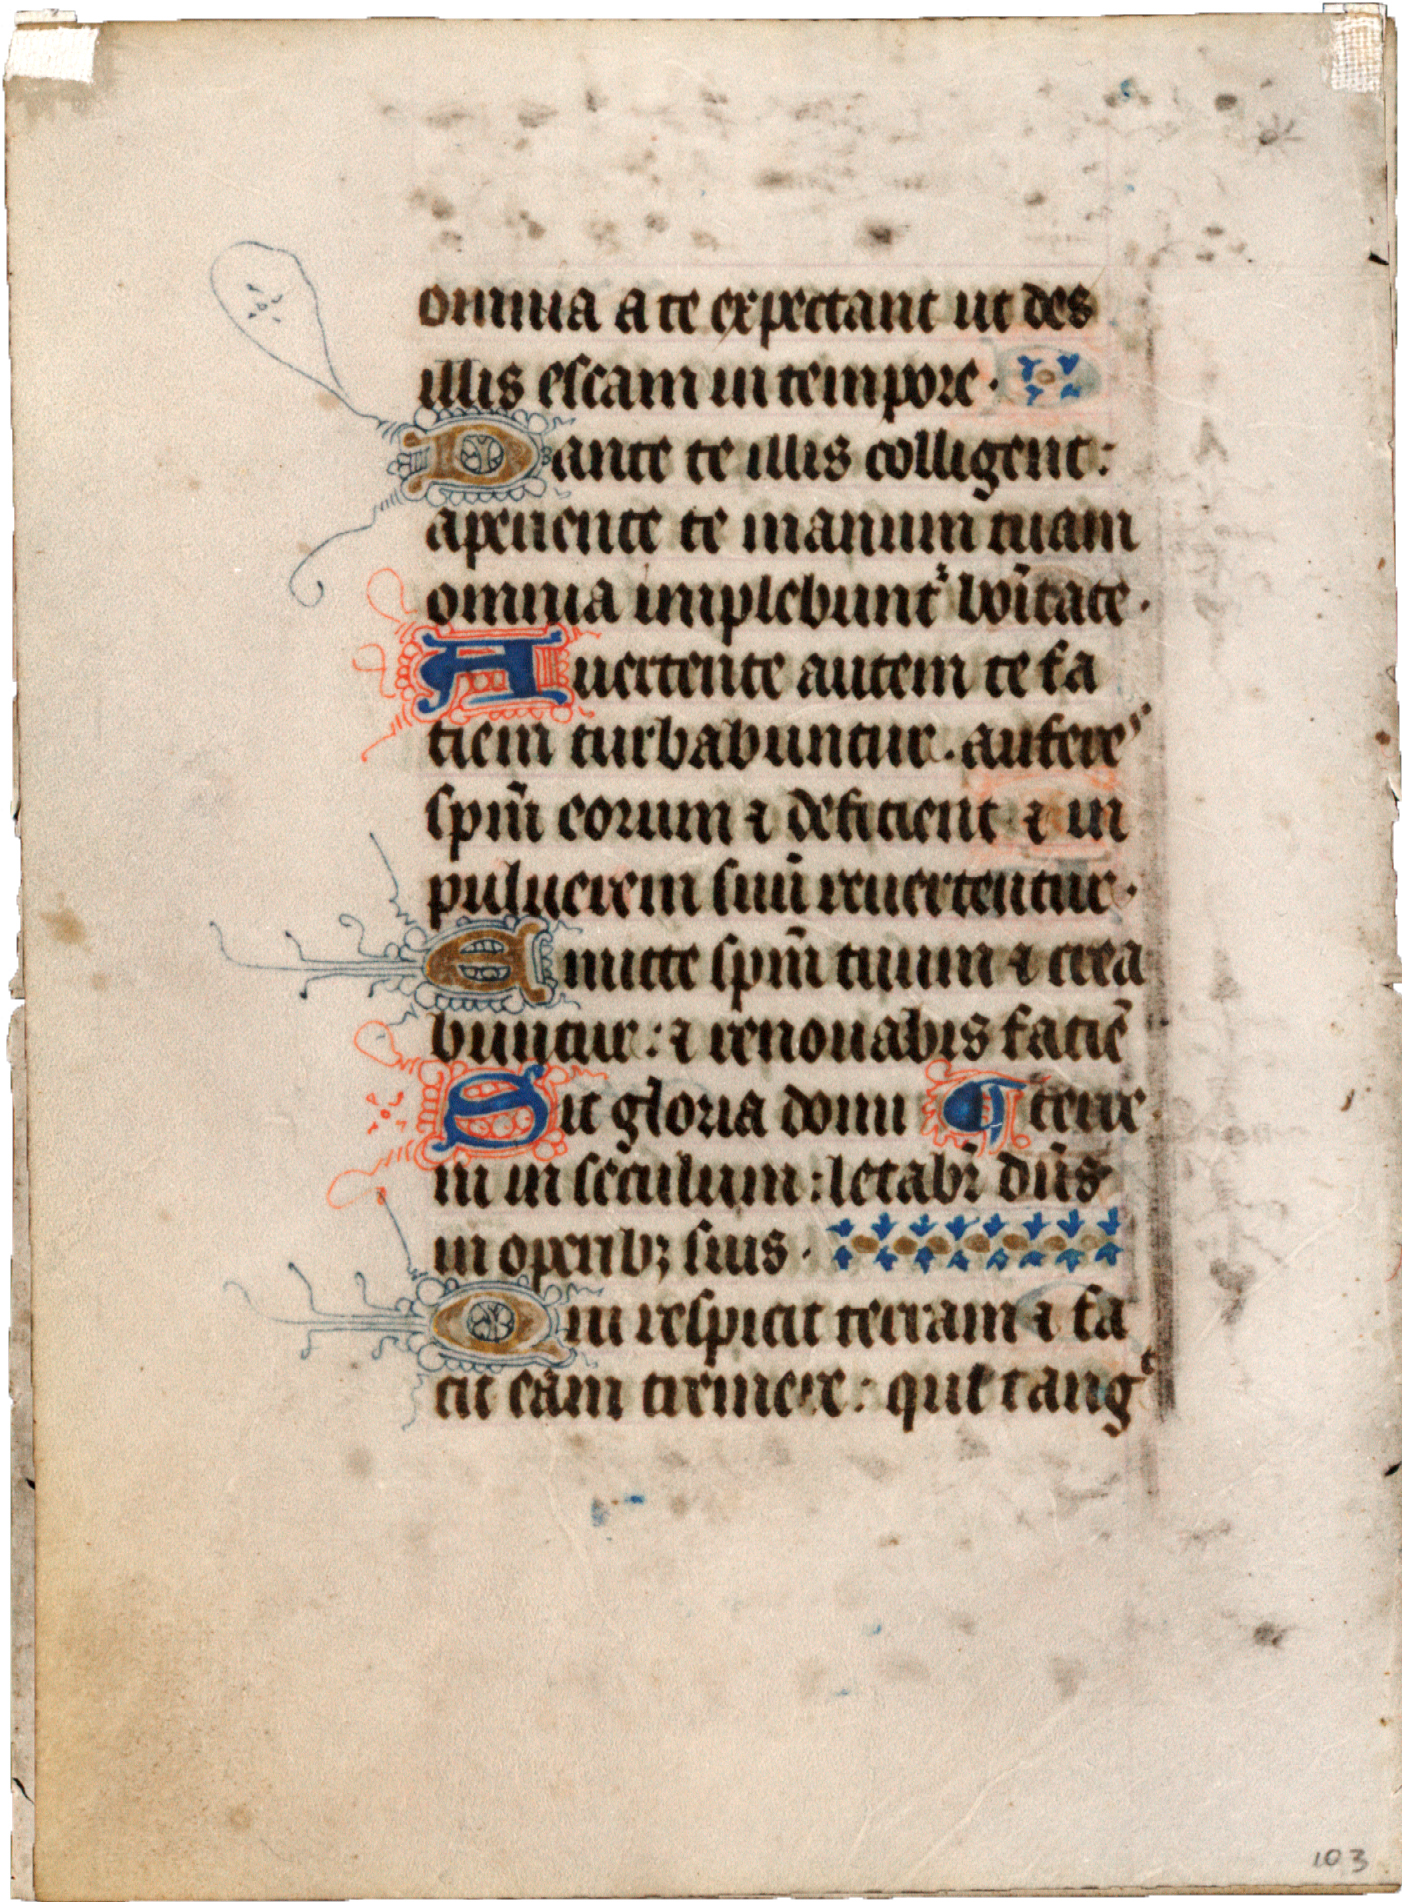 omnia a te expectant ut des
illis escam in tempore.
Dante te illis colligent:
aperiente te manum tuam
omnia implebunt᷑ bo̅itate.
Auertente autem te fa
ciem turbabuntur. aufere᷒
spm̅ eorum ⁊ deficient ⁊ in
puluerem suu̅ reuertentur.
Emitte spm̅ tuum ⁊ crea
buntur: ⁊ renouabis facie̅
Sit gloria domi ¶ terre.
ni in seculum: letabi᷑ dn̅s
in operibꝫ suis.
Qui respicit terram ⁊ fa
cit eam tremere: qui tangᵗ
103